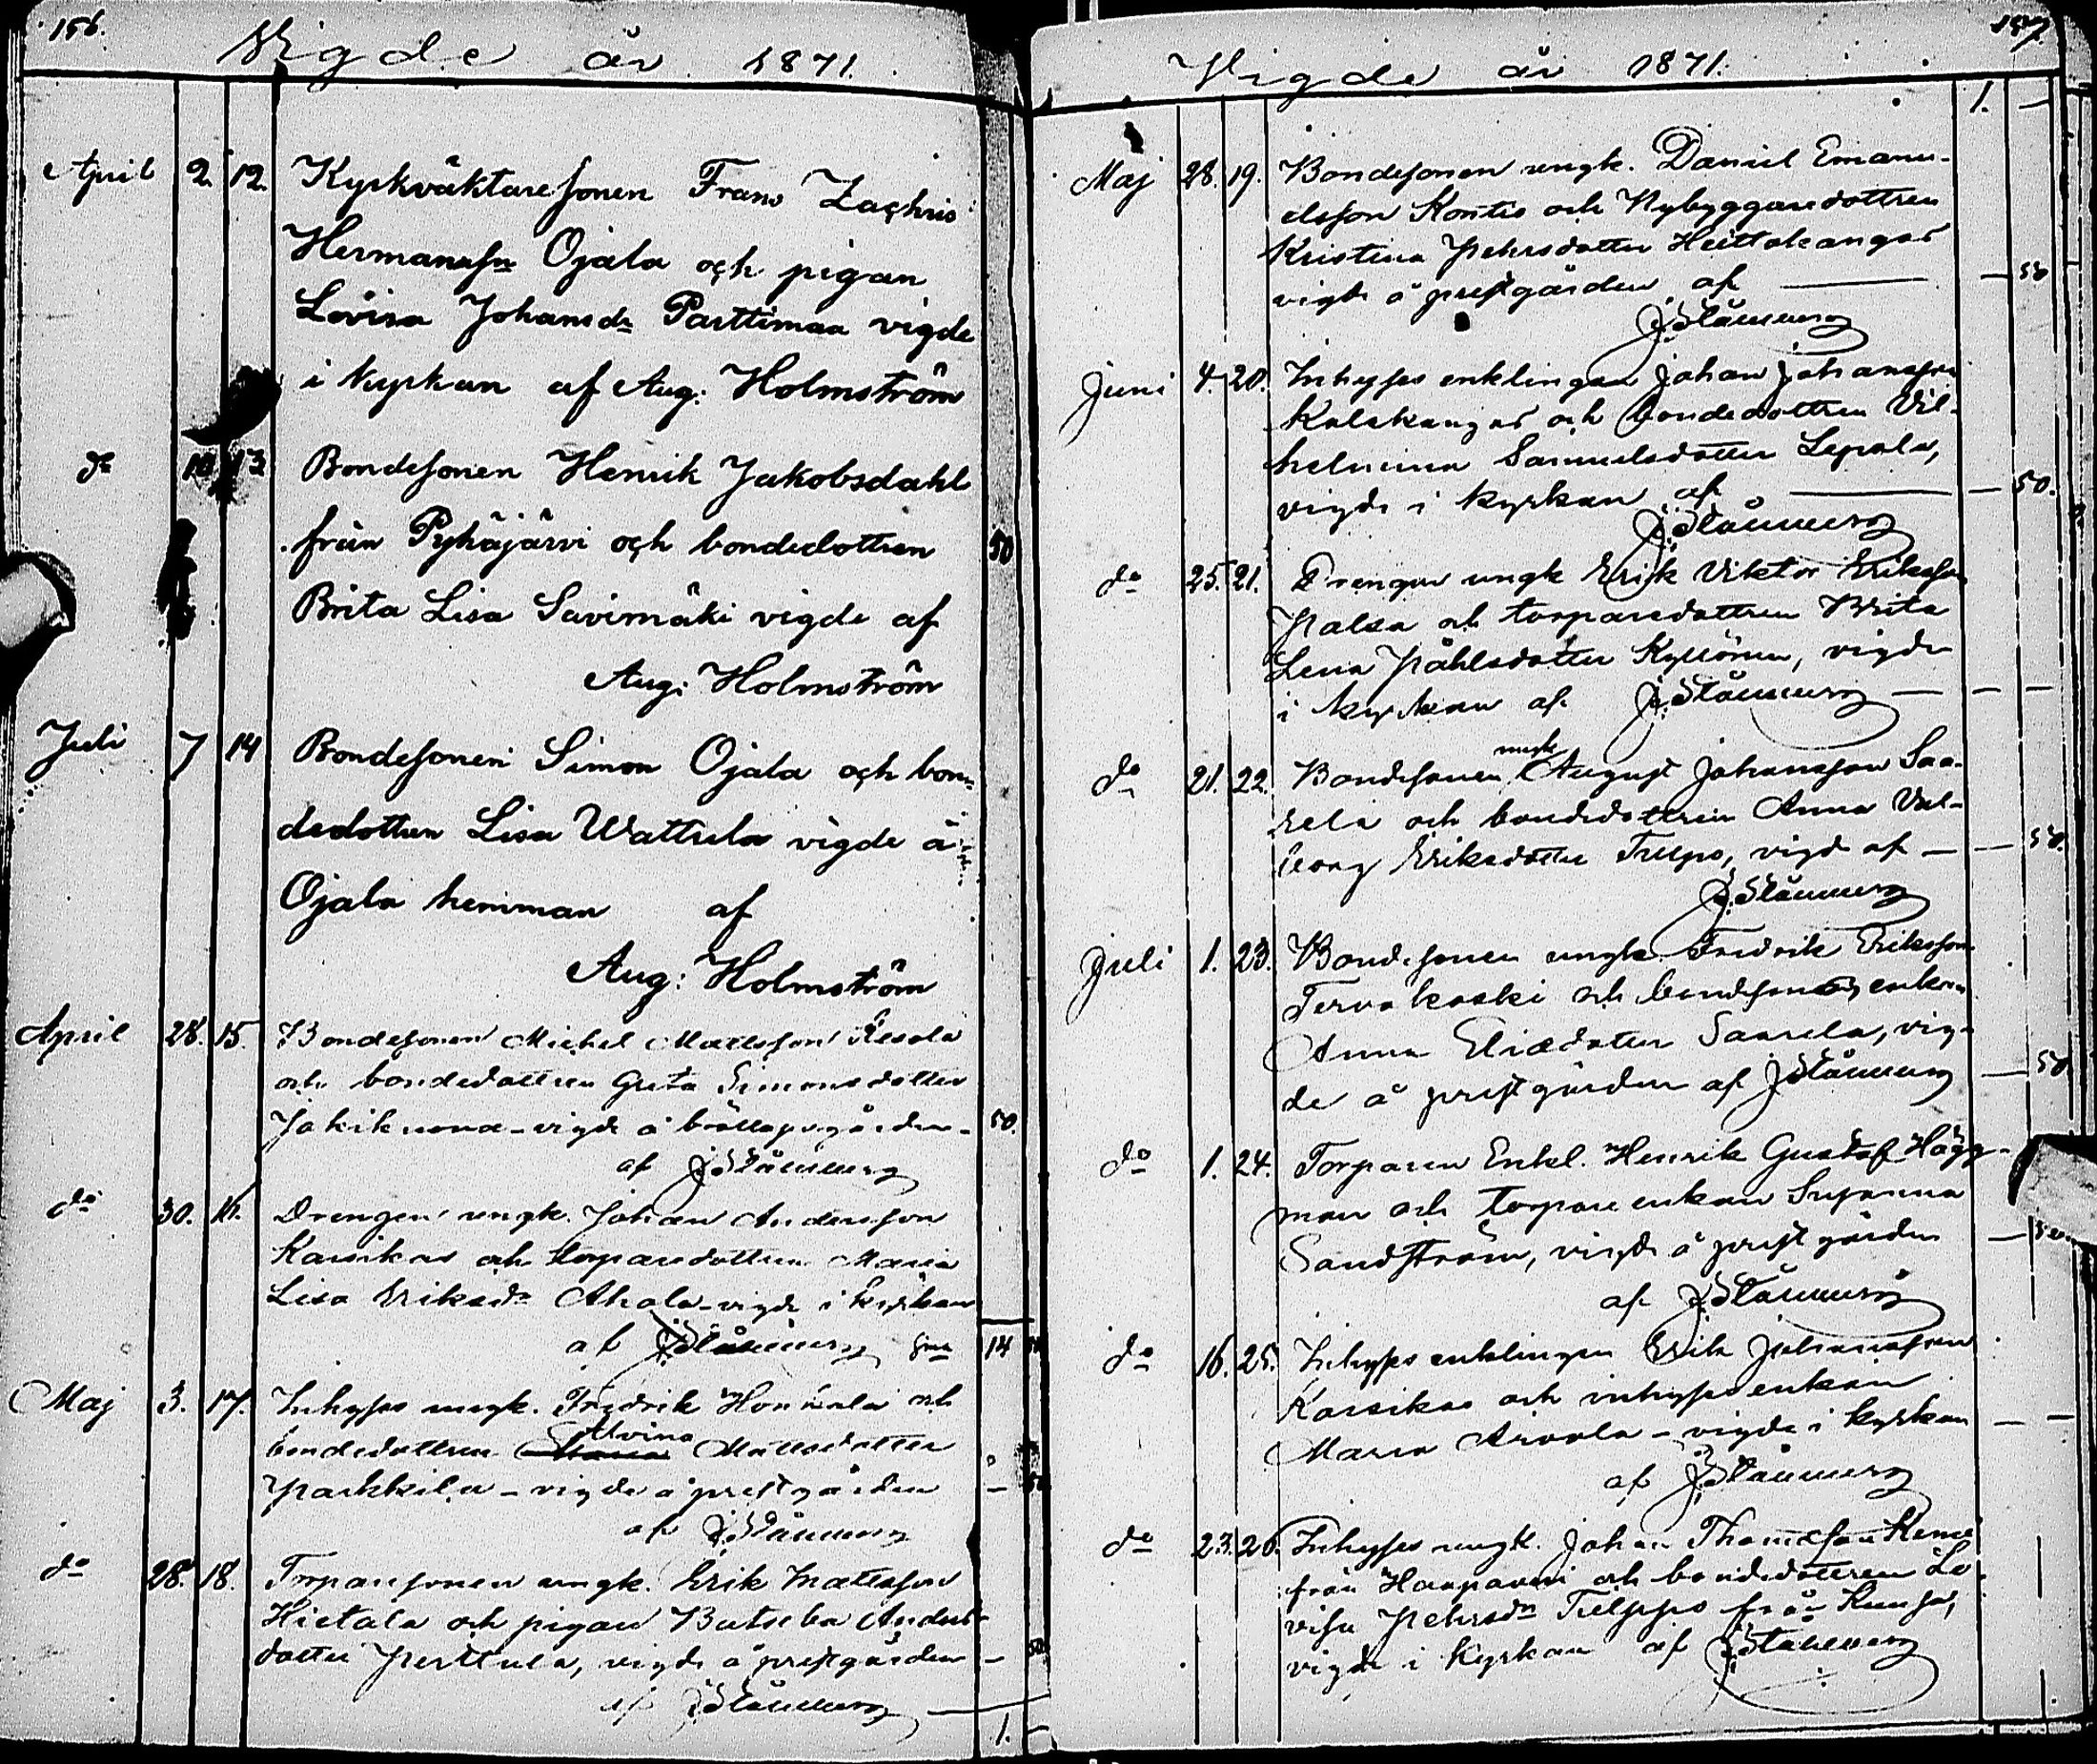 156.
Vigde år 1871.
April 2. 12. Kyrkväktaresonen Frans Zachris
Hermanssn Ojala och pigan
Lovisa Johansdr Parttimaa vigde
i kyrkan af Aug: Holmström
do 10 13 Bondesonen Henrik Jakobsdahl
från Pyhäjärvi och bondedottren 50
Brita Lisa Savimäki vigde af
Aug: Holmström
Juli 7 14 Bondesonen Simon Ojala och bon-
dedottren Lisa Wattula vigde å
Ojala hemman af
Aug: Holmström
April 28. 15. Bondesonen Michel Mattsson
och bondedottren Greta Simonsdotter
vigde å bröllopsgården 50.
af
do 30. 16. Drengen ungk. Johan Andersson
Karsikas och torparedottren Maria
Lisa Eriksdr Ahola - vigde i kyrkan
af 14
Maj 3. 17. Inhyses ungk. Fredrik och
bondedottren Alvina Mattsdotter
Parkkila - vigde å prestgården
af
do 28. 18. Torparesonen ungk. Erik Mattsson
Hietala och pigan Batseba Anders-
dotter Perttula, vigde å prestgården
af
1.
157.
Vigde år 1871.
1. —
Maj 28. 19. Bondesonen ungk. Daniel Emanu-
elsson Kontio och Nybyggaredottren
Kristina Pehrsdotter Heittokangas
vigde å prestgården af — 50
Juni 4. 20. Inhyses enklingen Johan Johansson
Kalskangas och bondedottren Vil-
helmina Samuelsdotter Lepola,
vigde i kyrkan af — 50.
do 25. 21. Drengen ungk Erik Viktor Eriksson
Palsa och torparedottren Brita
Lena Påhlsdotter Kyllönen, vigde
i kyrkan af — — —
do 21. 22. Bondesonen ungk August Johansson Saa-
rela och bondedottren Anna Val-
borg Eriksdotter Tulppo, vigde af — 50.
Juli 1. 23. Bondesonen ungk. Fredrik Eriksson
Tervakoski och bondesons enkan
Anna Eliædotter Saarela, vig-
de å prestgården af — 50
do 1. 24. Torparen Enkl. Henrik Gustaf Hägg-
man och torpare enkan Susanna
Sandström, vigde å prestgården — 50.
af
do 16. 25. Inhyses enklingen Erik Johansson
Karsikas och inhyses enkan
Maria Airaola - vigde i kyrkan — —
af
do 23. 26. Inhyses ungk. Johan Thomasson
från Haapavesi och bondedottren Lo-
visa Pehrsdr Tulppo från
vigde i kyrkan af